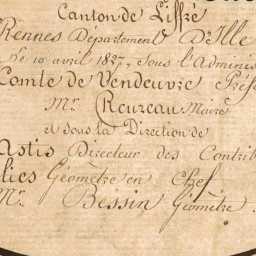 Canton de Liffré
Rennes Département D'Ille
le 10 avril 1827, sous l'Adminis
Comte de Vendeuvre Préfe
Mr. Reuzeau Maire
et sous la Direction de
Astis Directeur des Contrib
lies Géomètre en Chef
Mr. Bessin Géomètre